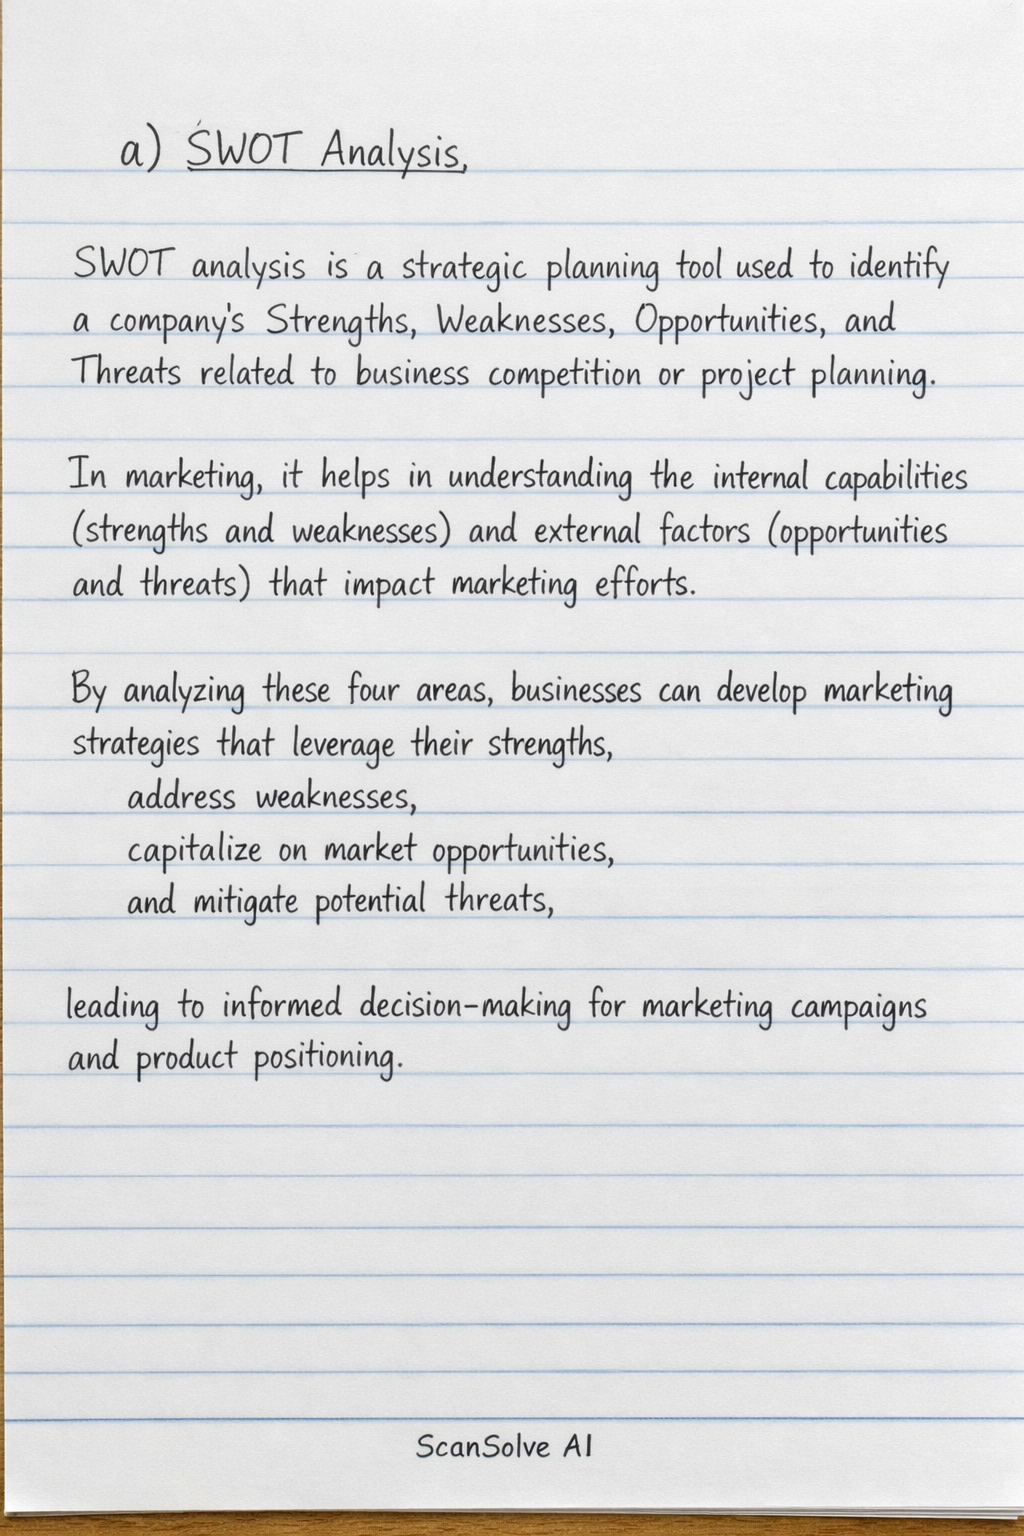 a) SWOT Analysis,
SWOT analysis is a strategic planning tool used to identify
a company's Strengths, Weaknesses, Opportunities, and
Threats related to business competition or project planning.
In marketing, it helps in understanding the internal capabilities
(strengths and weaknesses) and external factors (opportunities
and threats) that impact marketing efforts.
By analyzing these four areas, businesses can develop marketing
strategies that leverage their strengths,
address weaknesses,
capitalize on market opportunities,
and mitigate potential threats,
leading to informed decision-making for marketing campaigns
and product positioning.
ScanSolve AI